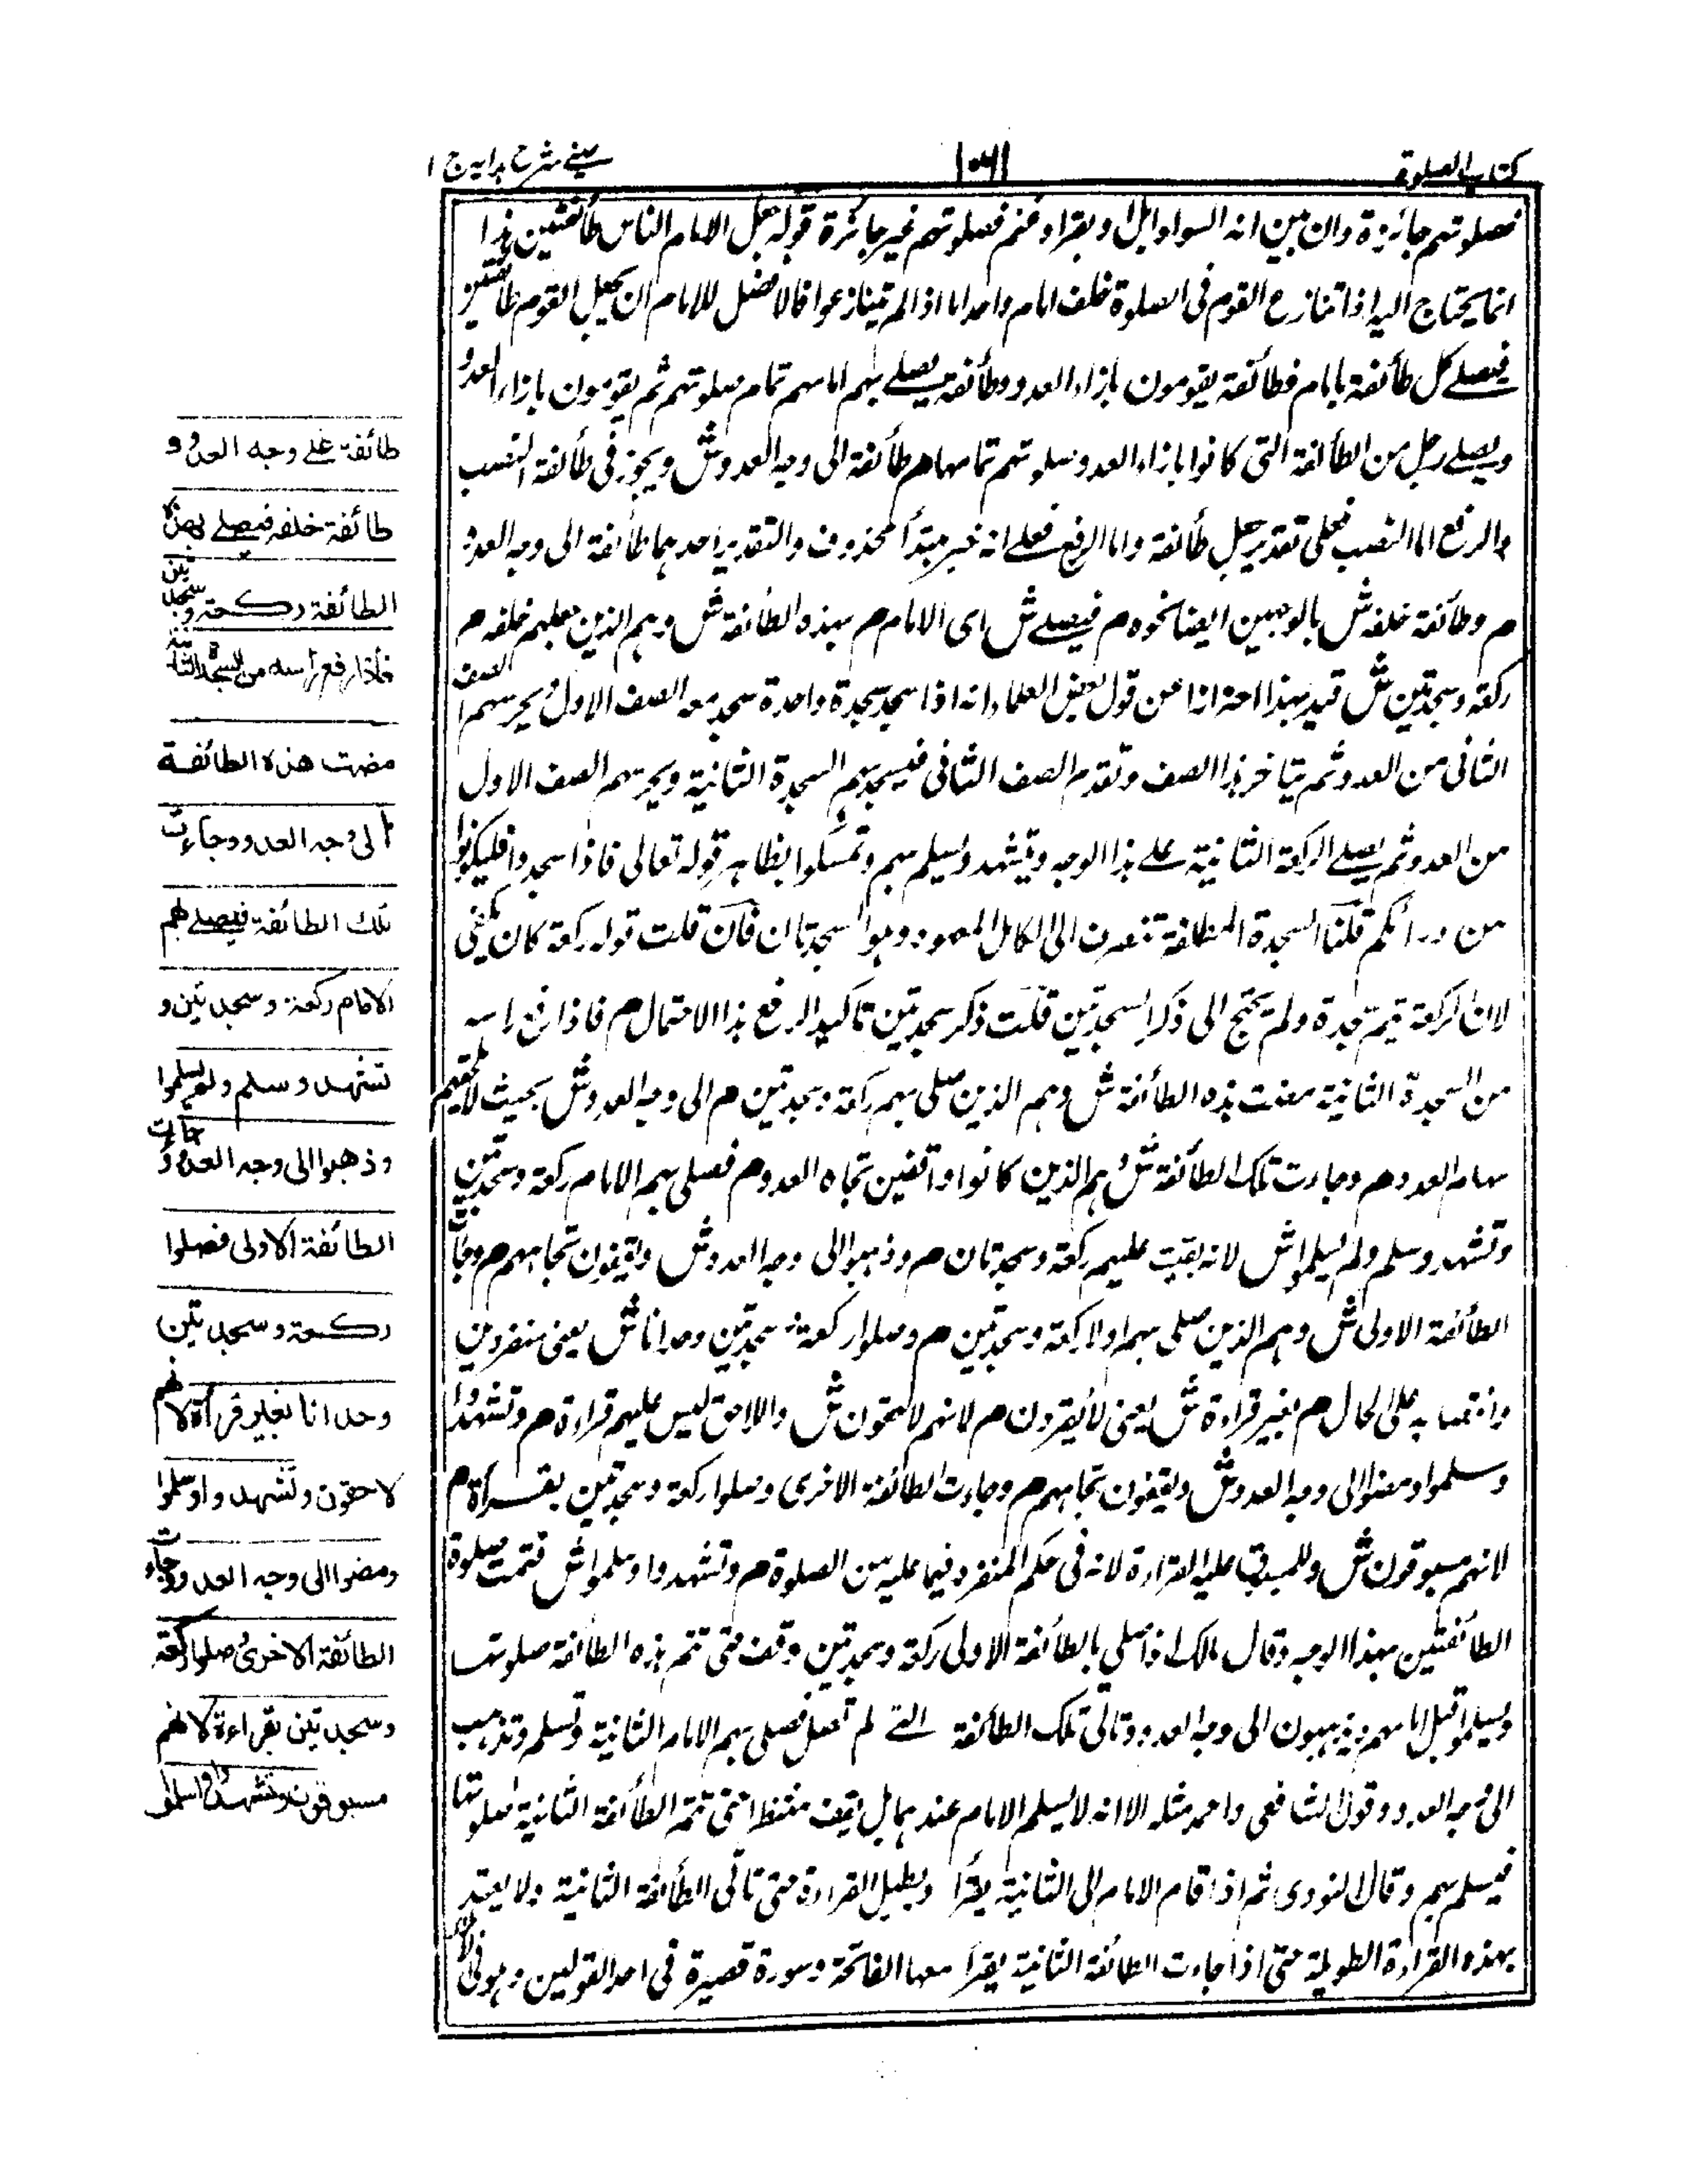 كتاب الصلوة
١٠٦١
عينى شرح هدايه ج ١
فصلوتهم جائزة وان تبين انه السواد ابل او بقر او غنم فصلوتهم غير جائزة قوله جعل الامام الناس طائفتين هذا
انما يحتاج اليه اذا تنازع القوم فى الصلوة خلف امام واحد اما اذا لم يتنازعوا فالافضل للامام ان يجعل القوم طائفتين
فيصلے كل طائفة بامام فطائفة يقومون بازاء العدو وطائفة يصلے بهم امامهم تمام صلوتهم ثم يقومون بازاء العدو
ويصلے رجل من الطائفة التى كانوا بازاء العدو صلوتهم تمامها م طائفة الى وجه العدو ش ويجوز فى طائفة النصب
والرفع اما النصب فعلى تقدير جعل طائفة واما الرفع فعلے انه خبر مبتدأ محذوف والتقدير احدهما طائفة الى وجه العدو
م وطائفة خلفه ش بالوجهين ايضا نحوه م فيصلے ش اى الامام م بهذه الطائفة ش وهم الذين جعلهم خلفه م
ركعة وسجدتين ش قيد بهذا احترازا عن قول بعض العلماء انه اذا سجد سجدة واحدة سجد معه الصف الاول ويحرسهم الصف
الثانى من العدو ثم يتاخر هذا الصف وتقدم الصف الثانى فيسجد بهم السجدة الثانية ويحرسهم الصف الاول
من العدو ثم يصلے الركعة الثانية علے هذا الوجه ويتشهد ويسلم بهم وتمسكوا بظاهر قوله تعالى فاذا سجدوا فليكونوا
من ورائكم قلنا السجدة المطلقة تنصرف الى الكامل المعهود وهو السجدتان فان قلت قوله ركعة كان يكفى
لان الركعة تتم بسجدة ولم يحتج الى ذكر السجدتين قلت ذكر سجدتين تاكيد الرفع هذا الاحتمال م فاذا رفع راسه
من السجدة الثانية مضت هذه الطائفة ش وهم الذين صلى بهم ركعة وسجدتين م الى وجه العدو ش بحيث لا يلحقهم
سهام العدو م وجاءت تلك الطائفة ش هم الذين كانوا واقفين تجاه العدو م فصلى بهم الامام ركعة وسجدتين
وتشهد وسلم ولم يسلموا ش لانه بقيت عليهم ركعة وسجدتان م وذهبوا الى وجه العدو ش ويقفون تجاههم م وجاءت
الطائفة الاولى ش وهم الذين صلى بهم اولا ركعة وسجدتين م وصلوا ركعة و سجدتين وحدانا ش يعنى منفردين
وانتصابه على الحال م بغير قراءة ش يعنى لا يقرءون م لانهم لاحقون ش واللاحق ليس عليهم قراءة م وتشهدوا
وسلموا ومضوا الى وجه العدو ش ويقفون تجاههم م وجاءت الطائفة الاخرى وصلوا ركعة وسجدتين بقراءة م
لانهم مسبوقون ش وللمسبوق عليه القراءة لانه فى حكم المنفرد فيما عليه من الصلوة م وتشهدوا وسلموا ش فتمت صلوة
الطائفتين بهذا الوجه وقال مالك اذا صلى بالطائفة الاولى ركعة وسجدتين وقف حتى تتم هذه الطائفة صلوتها
ويسلموا قبل امامهم ويذهبون الى وجه العدو وتاتى تلك الطائفة التے لم تصل فصلى بهم الامام الثانية وتسلم وتذهب
الى وجه العدو وقول الشافعى واحمد مثله الا انه لا يسلم الامام عندهما بل يقف منتظرا حتى تتم الطائفة الثانية صلوتها
فيسلم بهم وقال النووى ثم اذا قام الامام الى الثانية يقرأ ويطيل القراءة حتى تاتى الطائفة الثانية ولا يعتد
بهذه القراءة الطويلة حتى اذا جاءت الطائفة الثانية يقرأ معها الفاتحة وسورة قصيرة فى احد القولين وهو فى
طائفة علے وجه العدو و
طائفة خلفه فيصلے بهذه
الطائفة ركعة وسجدتين
فاذا رفع رأسه من السجدة الثانية
مضت هذه الطائفة
الى وجه العدو وجاءت
تلك الطائفة فيصلے بهم
الامام ركعة وسجدتين و
تشهد وسلم ولم يسلموا
وذهبوا الى وجه العدو وجاءت
الطائفة الاولى فصلوا
ركعة وسجدتين
وحدانا بغير قرأة لانهم
لاحقون وتشهدوا وسلموا
ومضوا الى وجه العدو وجاءت
الطائفة الاخرى وصلوا ركعة
وسجدتين بقراءة لانهم
مسبوقون وتشهدوا وسلموا